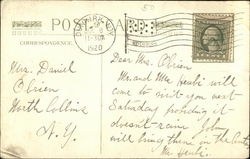 50
POST CARD
CORRESPONDENCE
1920
Mrs. Daniel
O'Brien
North Collins
N.Y.
Dear Mrs. O'Brien
Mr. and Mrs. Heubi will
come to visit you next
Saturday providing it
doesn't rain. John
will bring them in the
Mr. Heubi.